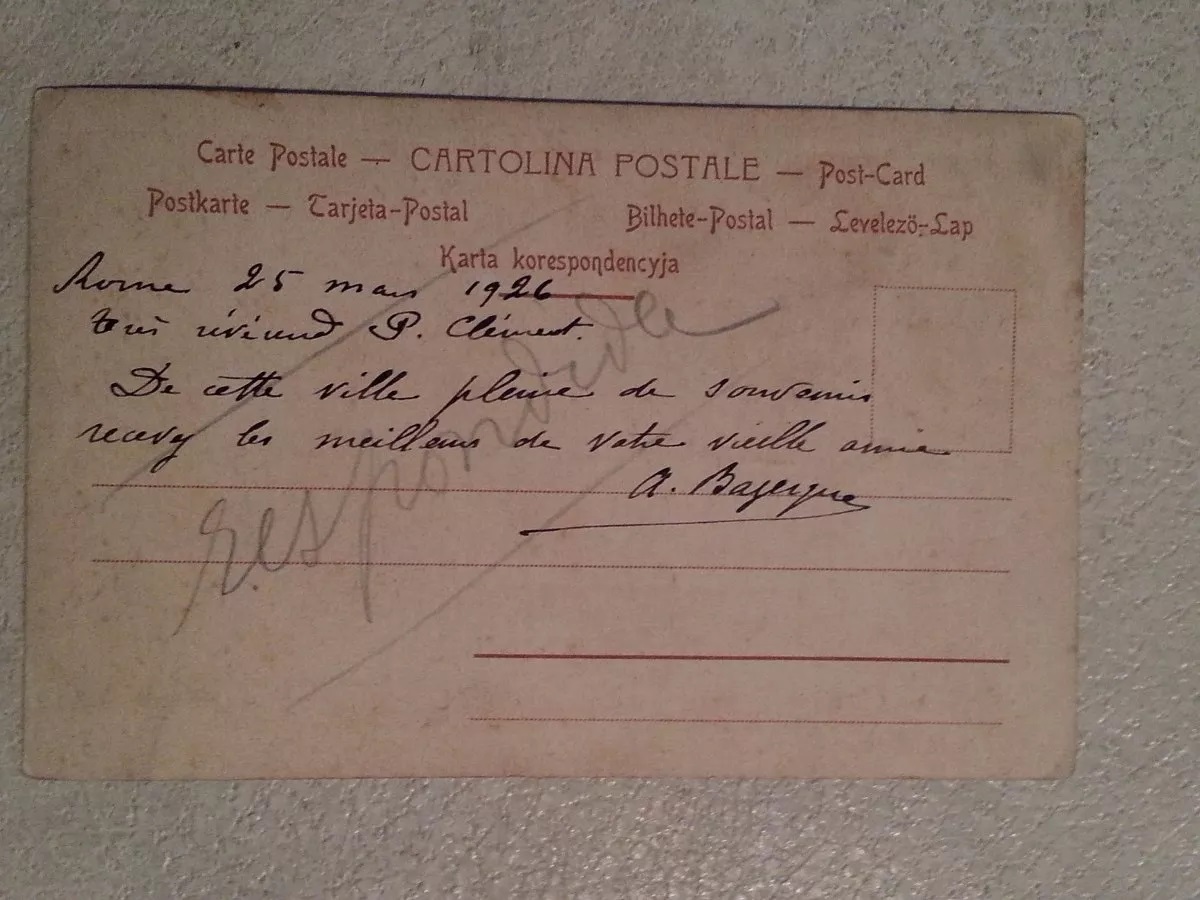 Carte Postale — CARTOLINA POSTALE — Post-Card
Postkarte — Tarjeta-Postal Bilhete-Postal — Levelező-Lap
Karta korespondencyja
Rome 25 mars 1926
très révérend P. Clément.
De cette ville pleine de souvenirs
recevez les meilleurs de votre vieille amie
A.
respondida